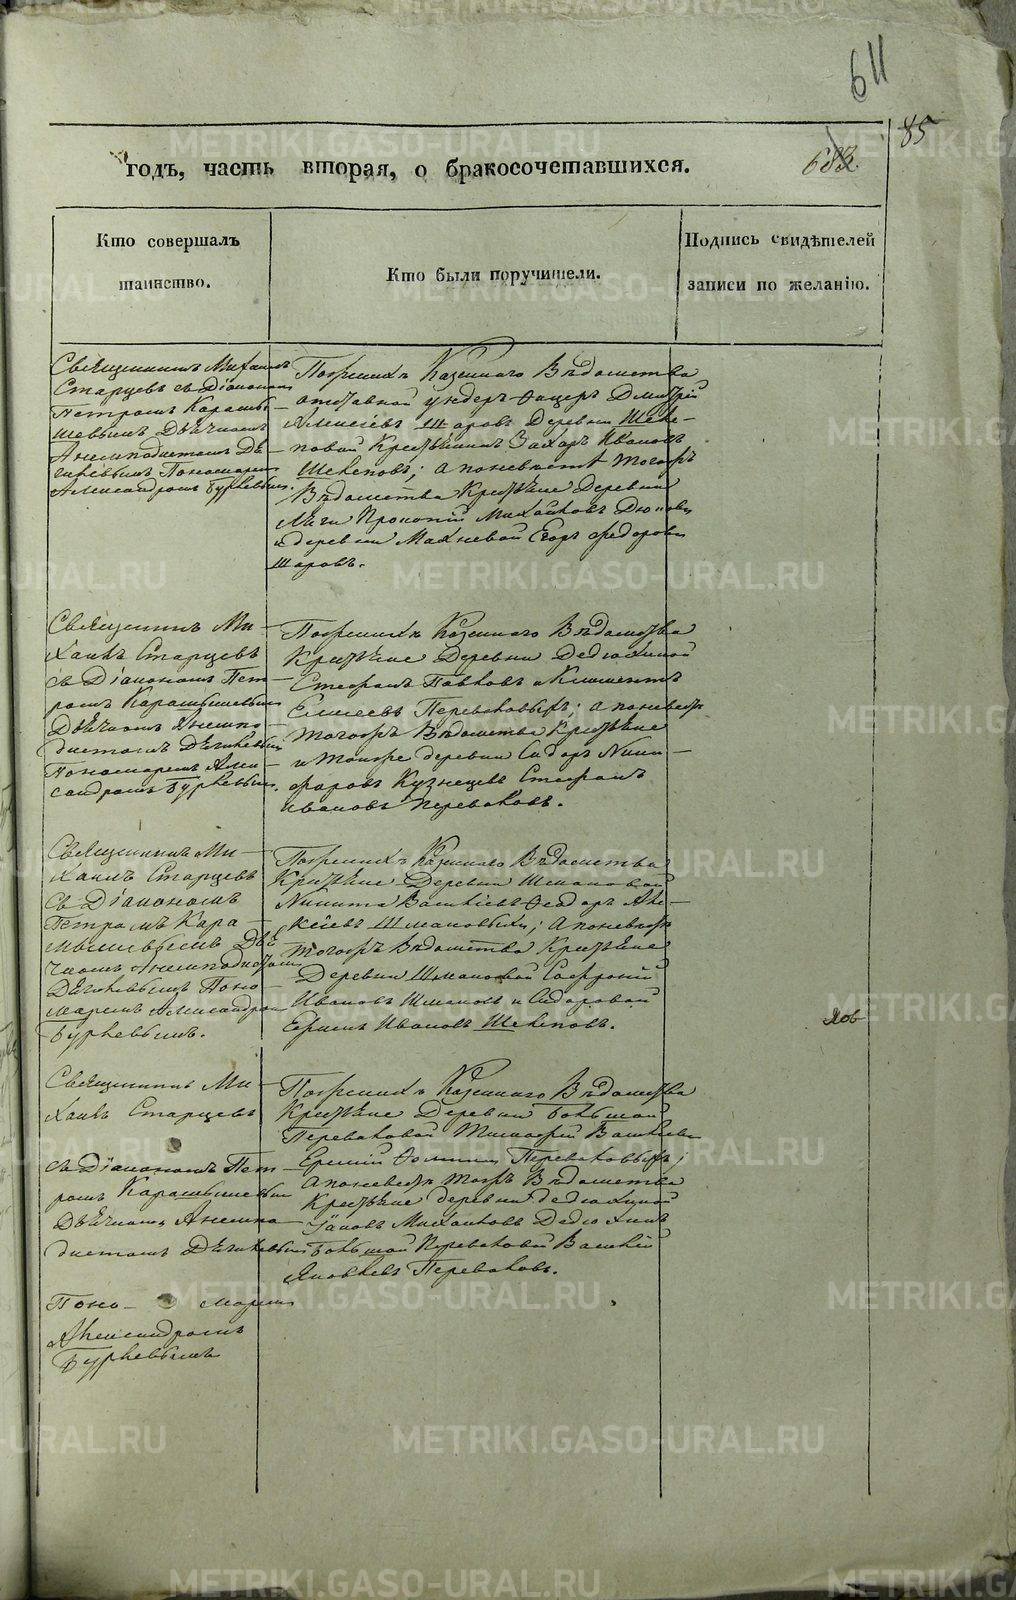 611
85
годъ, часть вторая, о бракосочетавшихся.
Кто совершалъ
таинство.
Кто были поручители.
Подпись свидѣтелей
записи по желанію.
Священникъ Михаилъ
Старцевъ съ Діакономъ
Петромъ Карамы-
шевымъ Дьячкомъ
Анемподистомъ Дя-
гилевымъ Пономаремъ
Александромъ Бурлевымъ.
По женихѣ Казеннаго Вѣдомства
отставной ундеръ-офицеръ Дмитрій
Алексѣевъ Шаровъ Деревни Щеле-
повой Крестьянинъ Захаръ Ивановъ
Щелеповъ; а по невѣстѣ тогожъ
Вѣдомства Крестьяне Деревни
Прокопій Михайловъ
и деревни Махневой Егоръ Федоровъ
Шаровъ.
Священникъ Ми-
хаилъ Старцевъ
съ Діакономъ Пет-
ромъ Карамышевымъ
Дьячкомъ Анемпо-
дистомъ Дягилевымъ
Пономаремъ Алек-
сандромъ Бурлевымъ.
По женихѣ Казеннаго Вѣдомства
Крестьяне Деревни Дедюхиной
Стефанъ Павловъ и Климентъ
Елисеевъ Переваловыхъ; а по невѣстѣ
тогожъ Вѣдомства Крестьяне
и тойже деревни Сидоръ Ники-
форовъ Кузнецовъ Стефанъ
Ивановъ Переваловъ.
Священникъ Ми-
хаилъ Старцевъ
съ Діакономъ
Петромъ Кара-
мышевымъ Дья-
чкомъ Анемподистомъ
Дягилевымъ Поно-
маремъ Александромъ
Бурлевымъ.
По женихѣ Казеннаго Вѣдомства
Крестьяне Деревни Шмаковой
Никита Васильевъ Федоръ Але-
ксѣевъ Шмаковыхъ; а по невѣстѣ
тогожъ Вѣдомства Крестьяне
Деревни Шмаковой Софроній
Ивановъ Шмаковъ и Сидоровой
Ивановъ Щелеповъ.
Священникъ Ми-
хаилъ Старцевъ
съ Діакономъ Пет-
ромъ Карамышевымъ
Дьячкомъ Анемпо-
дистомъ Дягилевымъ
Поно- маремъ
Александромъ
Бурлевымъ
По женихѣ Казеннаго Вѣдомства
Крестьяне Деревни Большой
Переваловой Тимофей Васильевъ
Ермій Фоминъ Переваловыхъ;
а по невѣстѣ тогожъ Вѣдомства
Крестьяне деревни Дедюхиной
Михайловъ Дедюхинъ
Большой Переваловой Василій
Яковлевъ Переваловъ.
METRIKI.GASO-URAL.RU